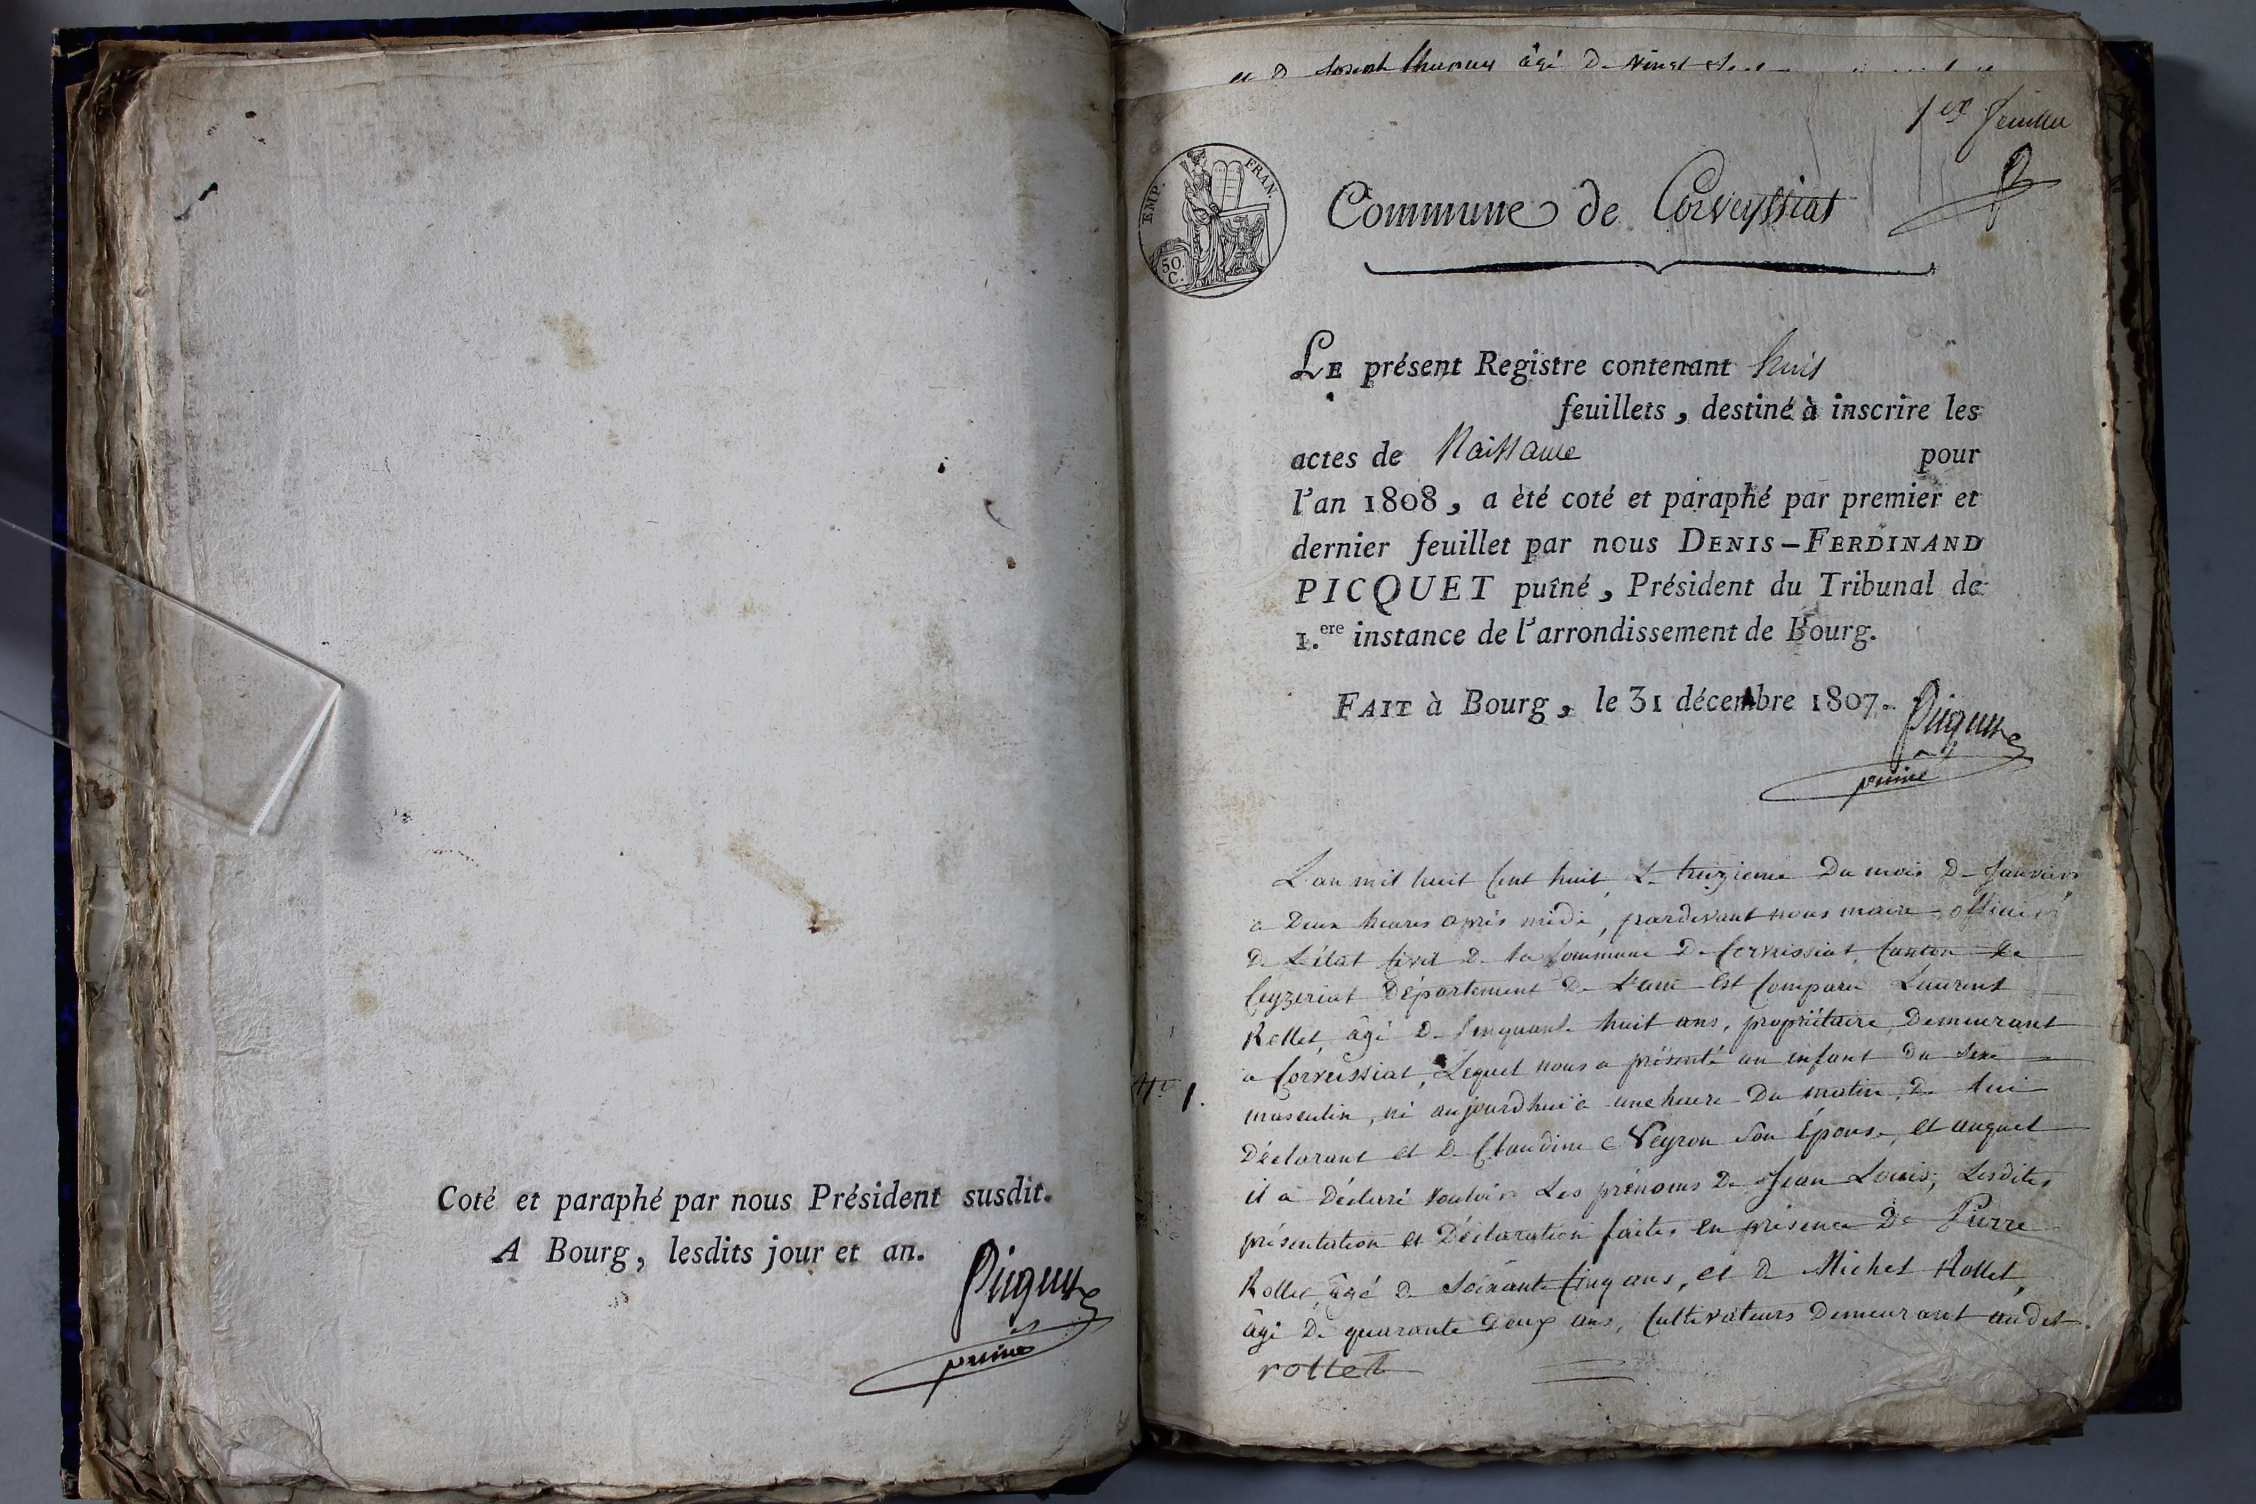 Coté et paraphé par nous Président susdit.
A Bourg, lesdits jour et an.
Picquet
puiné
et D. Joseph âgé D. Vingt
1er feuillet
EMP. FRAN.
50.
C.
Commune de Corveyssiat
LE présent Registre contenant huit
feuillets, destiné à inscrire les
actes de Naissance pour
l'an 1808, a été coté et paraphé par premier et
dernier feuillet par nous DENIS-FERDINAND
PICQUET puîné, Président du Tribunal de
1.ere instance de l'arrondissement de Bourg.
FAIT à Bourg, le 31 décembre 1807.
Picquet
puiné
L'an mil huit Cent huit, Le treizieme Du mois D. Janvier
a Deux heures après midi, pardevant nous maire officier
D. L'état Civil D. la Commune D. Corveissiat, Canton de
Ceyzeriat Département D. L'ain Est Comparu Laurent
Rollet, âgé D. Cinquante huit ans, propriétaire, Demeurant
a Corveissiat, Lequel nous a présenté un enfant Du Sexe
N.o 1.
masculin, né aujourdhui a une heure Du matin, D. lui
Déclarant et D. Claudine Veyron Son Épouse, et auquel
il a Déclaré vouloir Les prénoms D. Jean Louis; Lesdites
présentation et Déclaration faites en présence De Pierre
Rollet âgé D. Soixante Cinq ans, et D. Michel Rollet,
âgé D. quarante Deux ans, Cultivateurs Demeurant audit
rollet